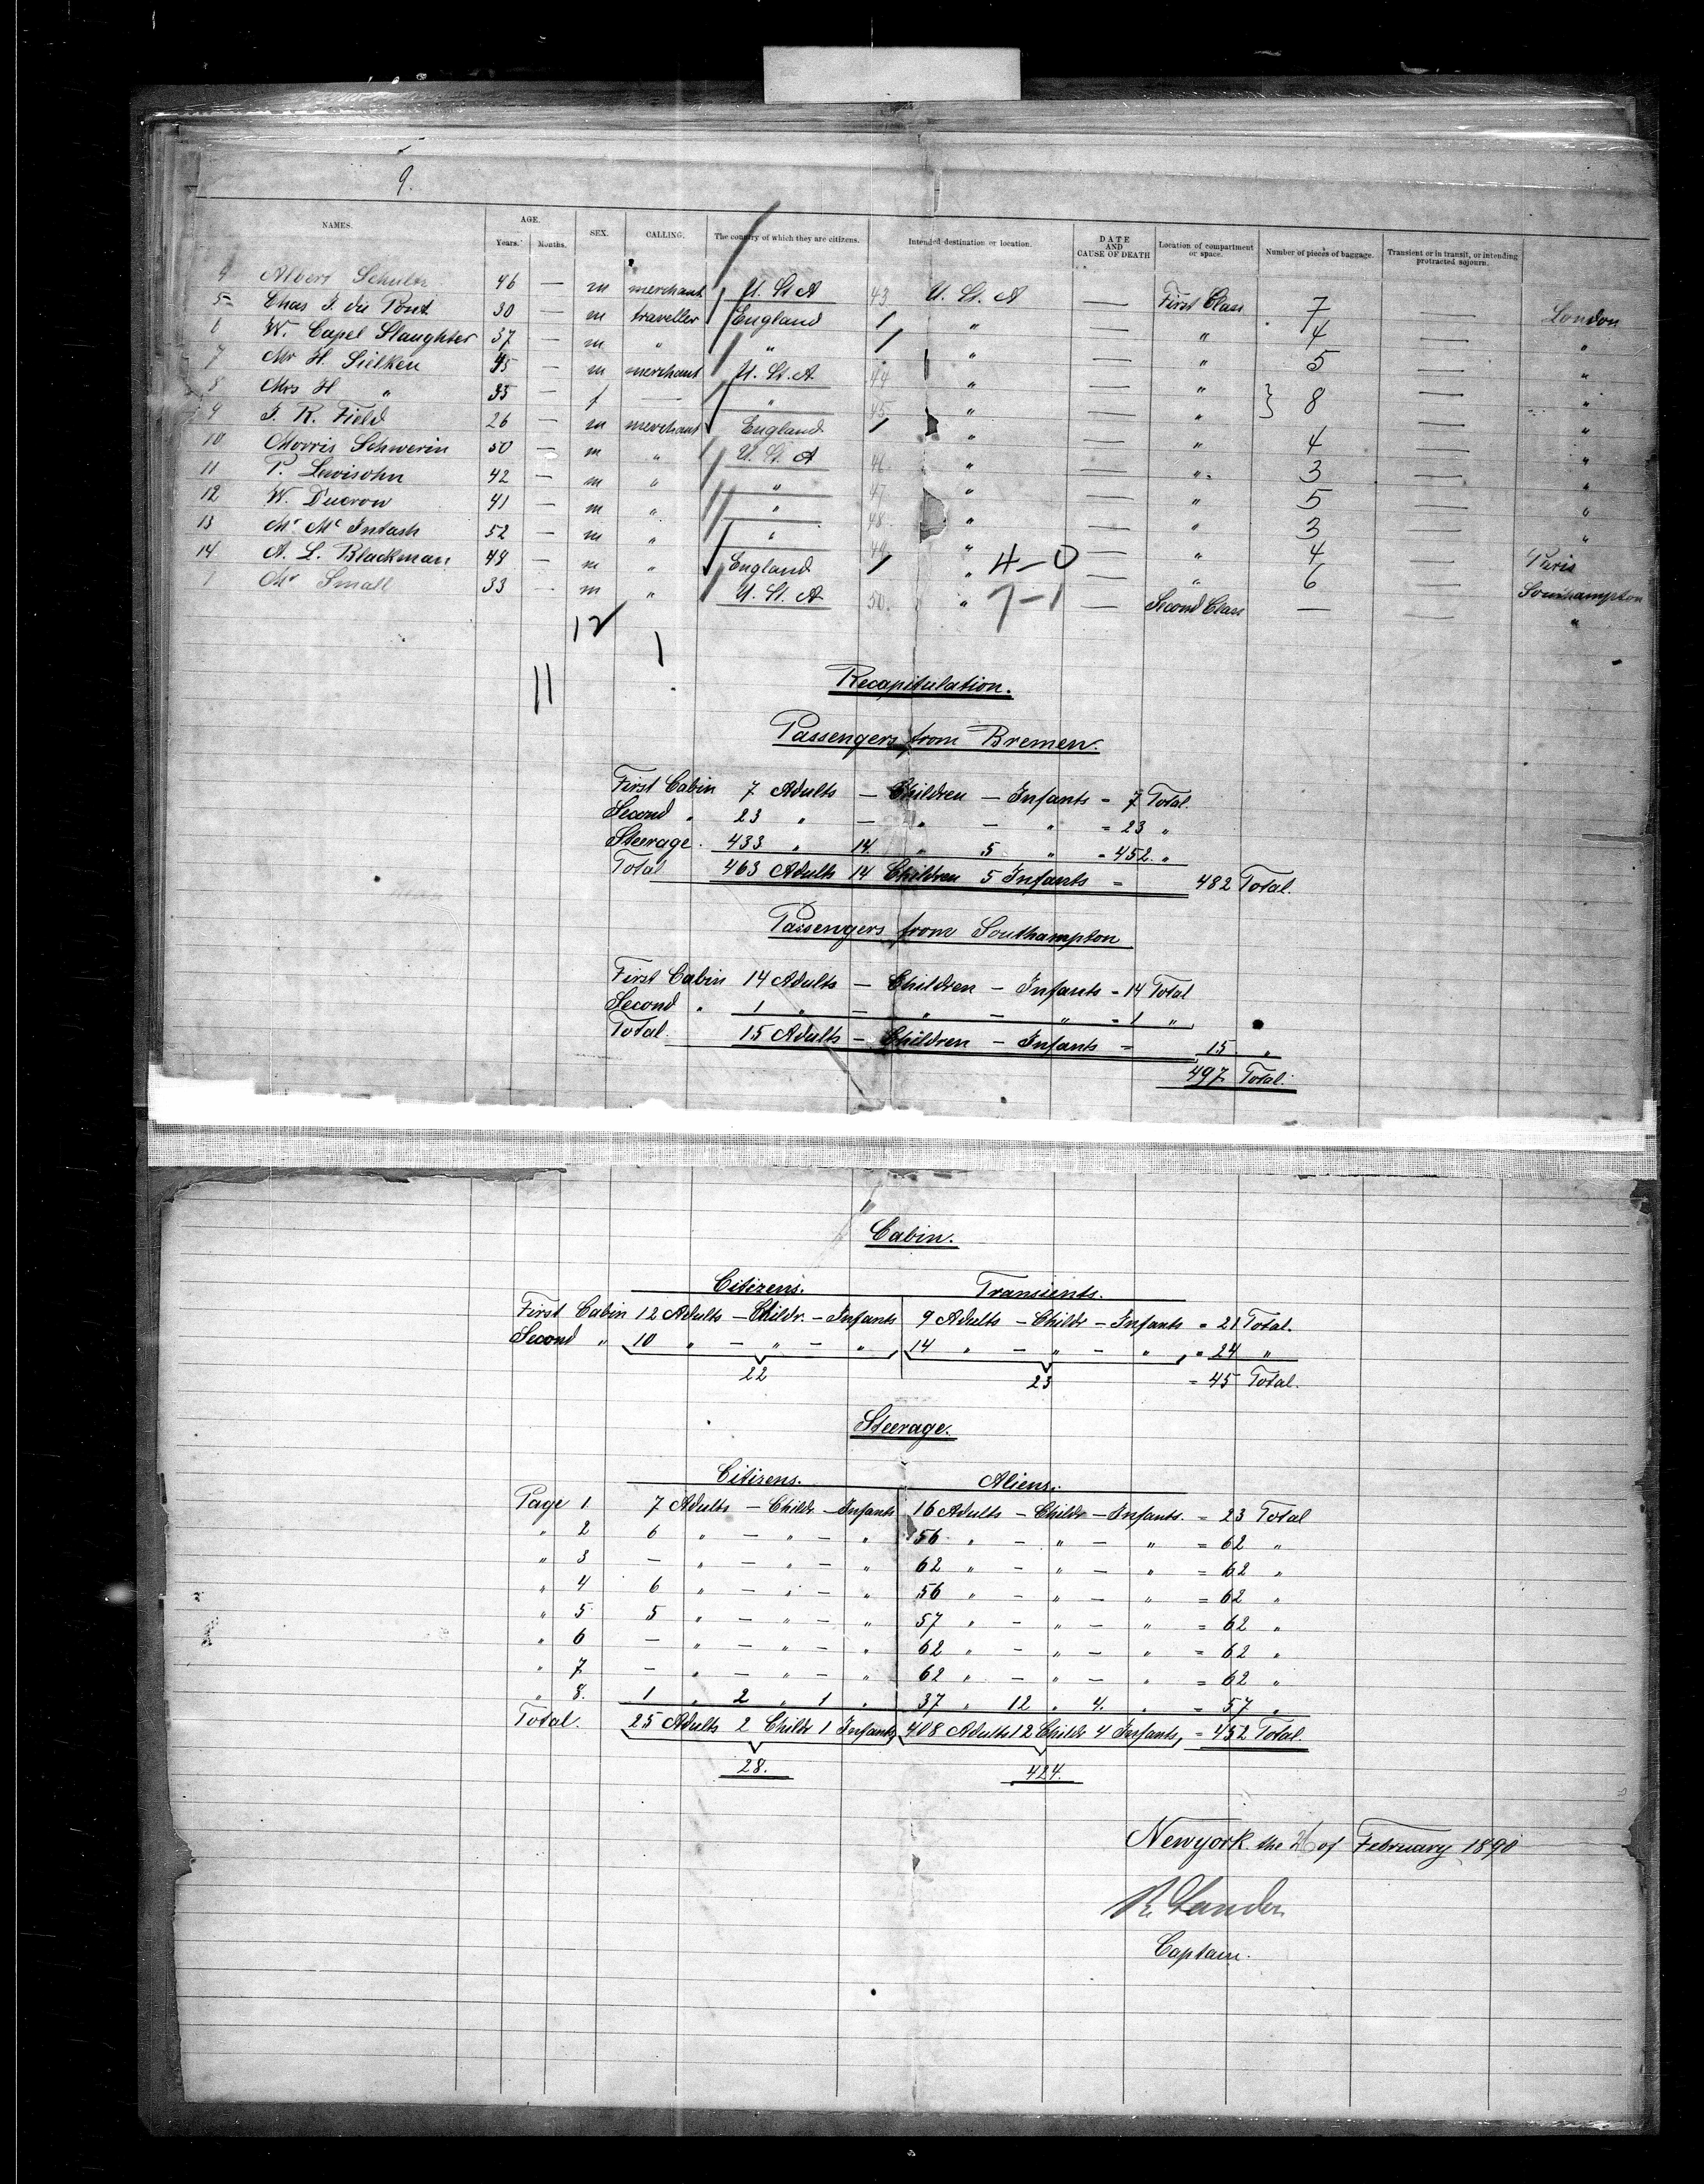 9.
NAMES. AGE. Years. Months. SEX. CALLING. The country of which they are citizens. Intended destination or location. DATE AND CAUSE OF DEATH Location of compartment or space. Number of pieces of baggage. Transient or in transit, or intending protracted sojourn.
4 Albert Schultz 46 — m merchant U. St. A 43 U. St. A — First Class 7 — London
5 Chas I. du Pont 30 — m traveller England " — " 4 — "
6 W. Capel Slaughter 37 — m " " " — " 5 — "
7 Mr H. Sielken 45 — m merchant U. St. A. 44 " — " } 8 — "
8 Mrs H " 35 — f — " 45 " — " "
9 F. R. Field 26 — m merchant England " — " 4 — "
10 Morris Schwerin 50 — m " U. St. A 46 " — " 3 — "
11 P. Lewisohn 42 — m " " 47 " — " 5 — "
12 W. Ducrow 41 — m " " 48 " — " 3 — "
13 Mr Mc Intash 52 — m " " 49 " — " 4 — Paris
14 A. L. Blackman 48 — m " England " 4-0 — " 6 — Southampton
1 Mr Small 33 — m " U. St. A. 50. " 7-1 — Second Class — — "
12 1
11
Recapitulation.
Passengers from Bremen.
First Cabin 7 Adults — Children — Infants = 7 Total.
Second " 23 " — " — " = 23 "
Steerage. 433 " 14 " 5 " = 452. "
Total 463 Adults 14 Children 5 Infants = 482 Total.
Passengers from Southampton
First Cabin 14 Adults — Children — Infants = 14 Total
Second " 1 " — " — " = 1 "
Total. 15 Adults — Children — Infants = 15 "
497 Total.
Cabin.
Citizens. Transients.
First Cabin 12 Adults — Childr. — Infants 9 Adults — Childr — Infants = 21 Total.
Second " 10 " — " — " 14 " — " — " = 24 "
22 23 = 45 Total.
Steerage.
Citizens. Aliens.
Page 1. 7 Adults — Childr — Infants 16 Adults — Childr — Infants. = 23 Total
" 2 6 " — " — " 56 " — " — " = 62 "
" 3 — " — " — " 62 " — " — " = 62 "
" 4 6 " — " — " 56 " — " — " = 62 "
" 5 5 " — " — " 57 " — " — " = 62 "
" 6 — " — " — " 62 " — " — " = 62 "
" 7 — " — " — " 62 " — " — " = 62 "
" 8. 1 " 2 " 1 " 37 " 12 " 4. " = 57 "
Total. 25 Adults 2 Childr 1 Infants, 408 Adults 12 Childr 4 Infants, = 452 Total.
28. 424.
Newyork the 26 of February 1890
R. Sander
Captain.